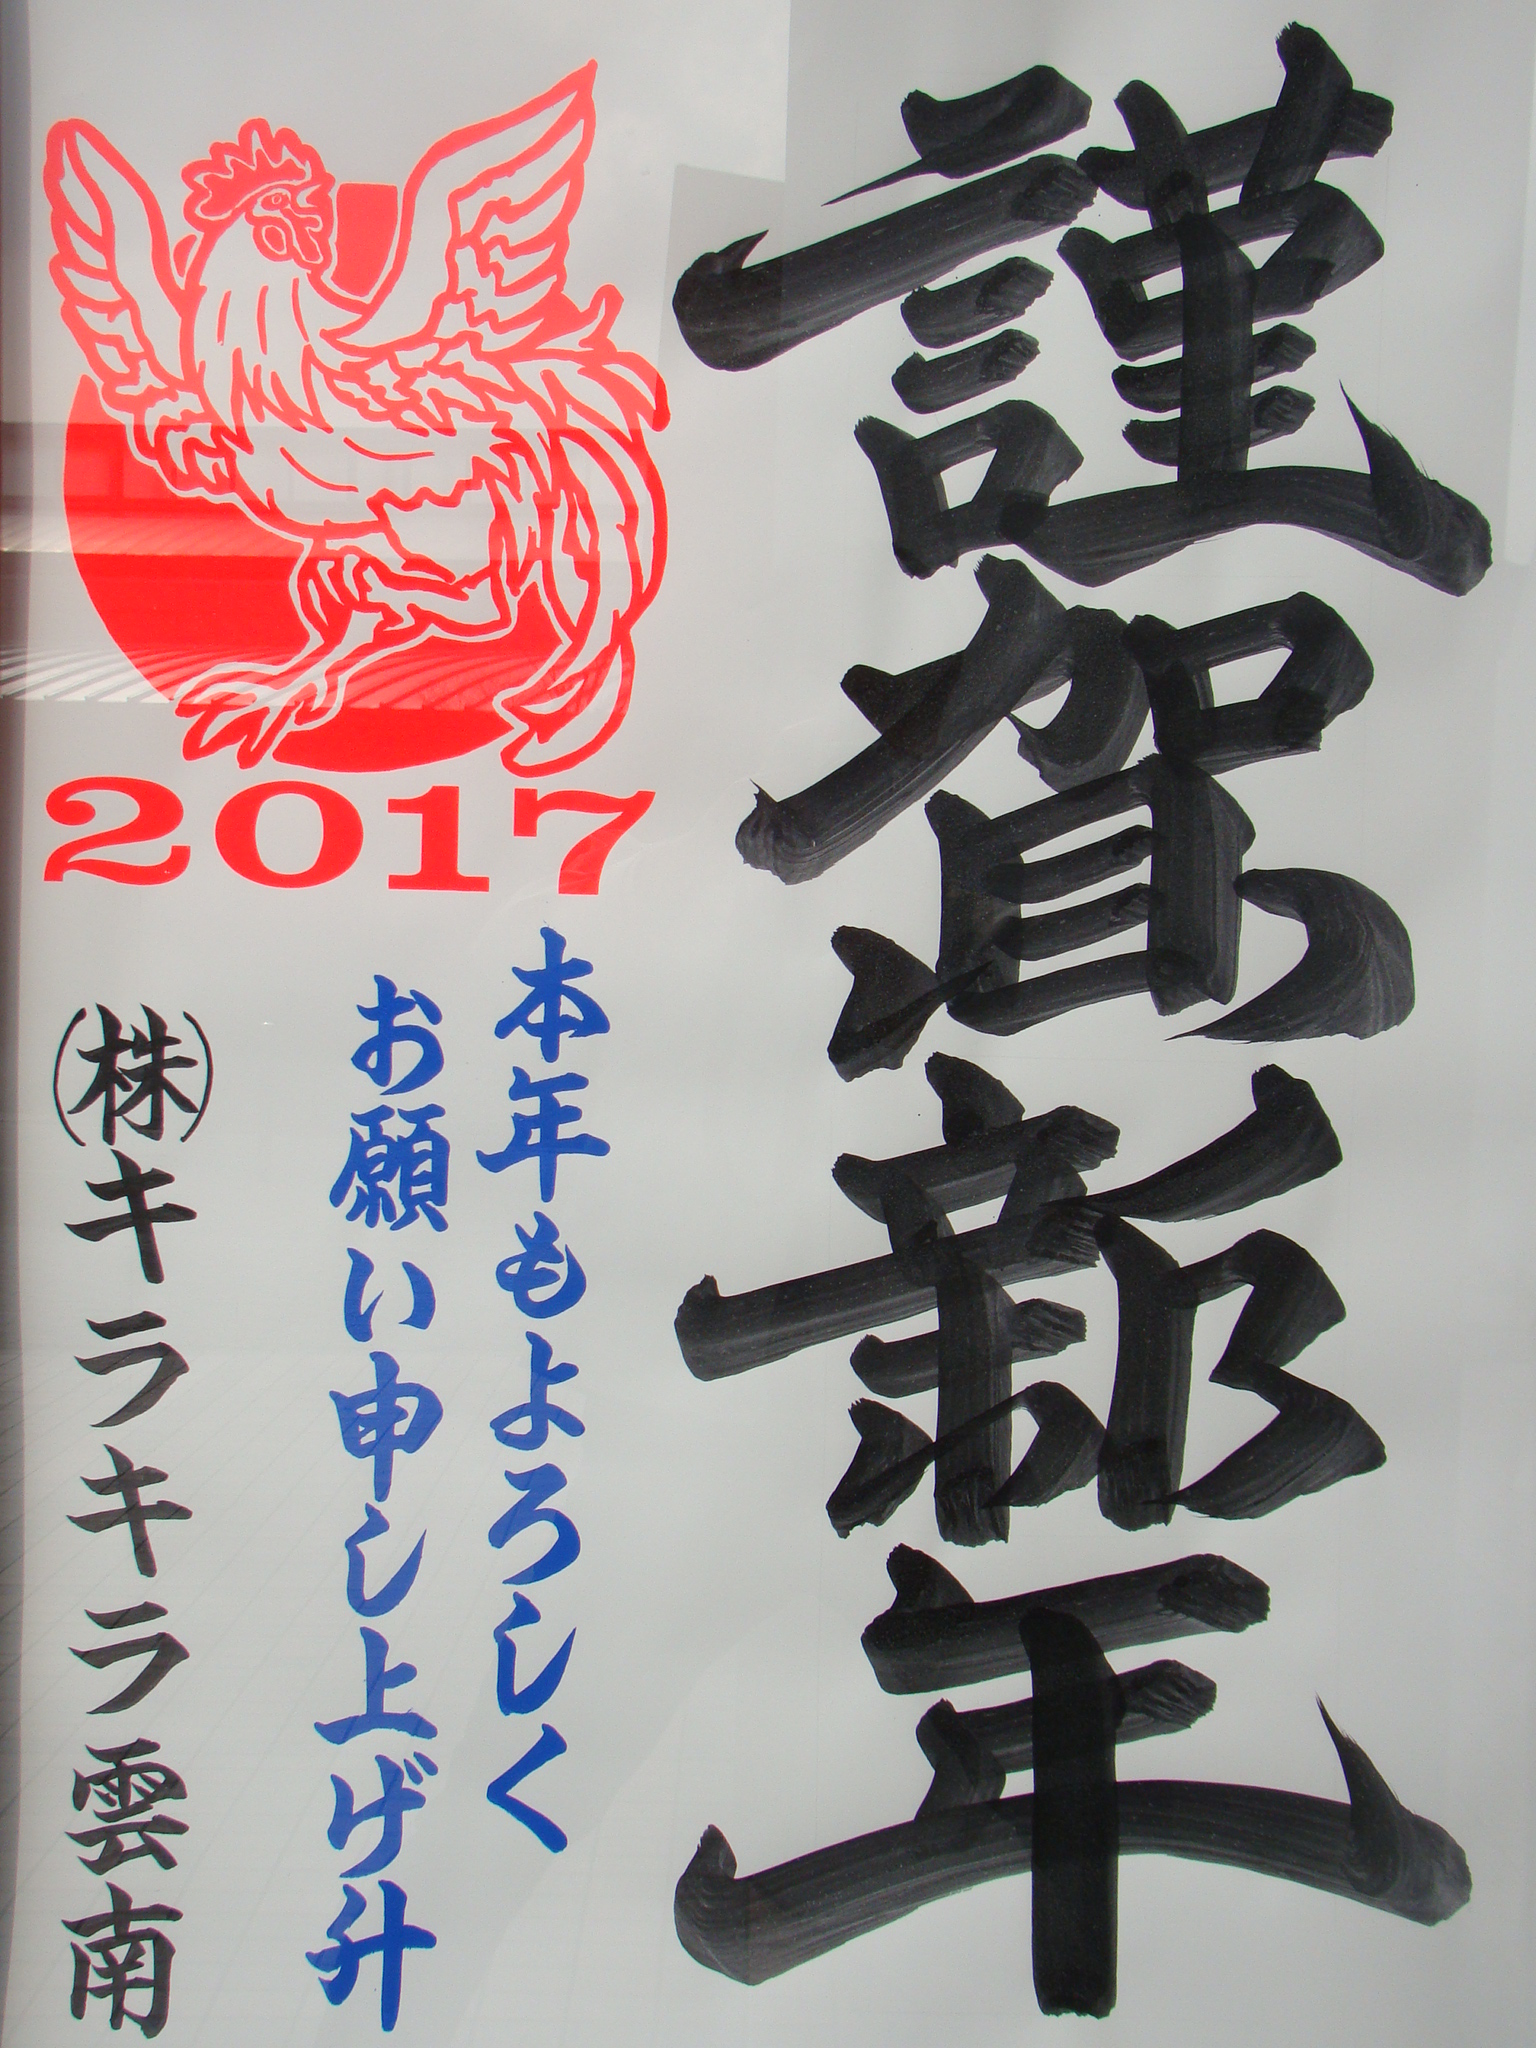 謹賀新年
2017
本年もよろしく
お願い申し上げ升
(株)キラキラ雲南